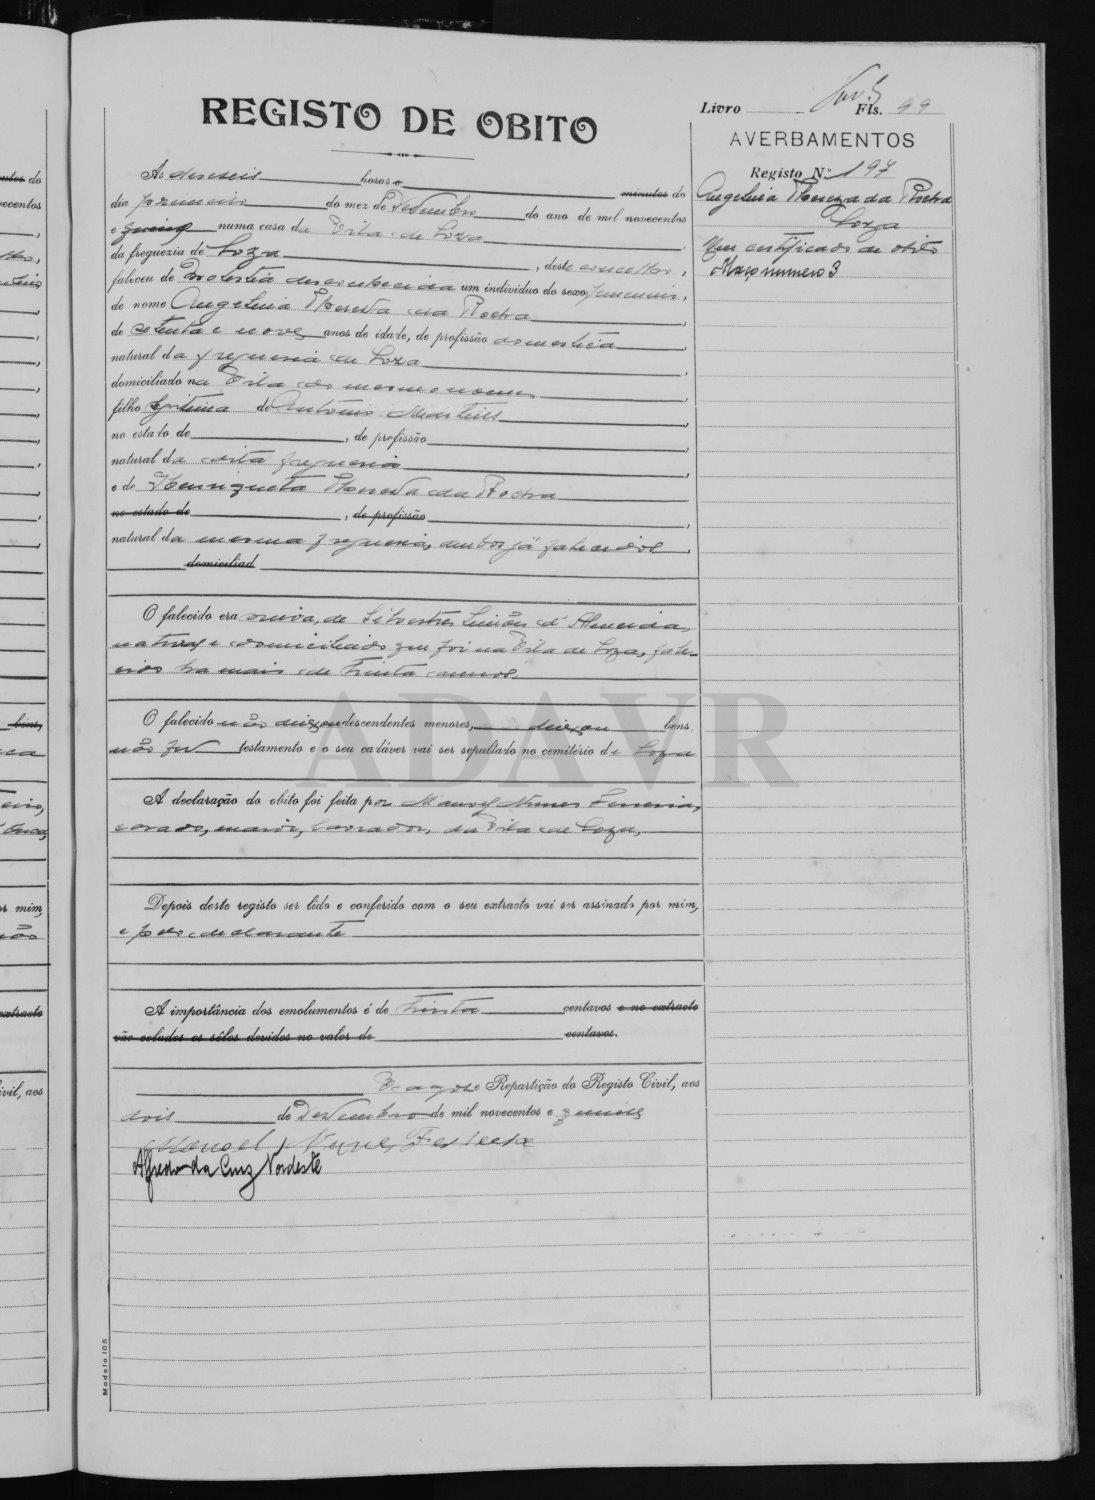 REGISTO DE OBITO
As dezeseis horas e minutos do
dia primeiro do mez de Dezembro do ano de mil novecentos
e quinze numa casa da Vila de Soza,
da freguezia de Soza, deste concelho,
faleceu de Molestia desconhecida um individuo do sexo femenino,
de nome Angelina Thereza da Rocha,
de setenta e nove anos de idade, de profissão domestica,
natural da freguesia de Soza,
domiciliado na Vila do mesmo nome,
filho legitima de António Martins,
no estado de , de profissão ,
natural da dita freguesia,
e de Henriqueta Thereza da Rocha
no estado de , de profissão ,
natural da mesma freguesia, ambos já falecidos,
domiciliad
O falecido era viuva, de Silvestre Simões d'Almeida,
natural e domiciliado que foi na Vila de Soza, fale-
cido ha mais de trinta annos.
O falecido não deixou descendentes menores, deixou bens
não fez testamento e o seu cadáver vai ser sepultado no cemitério de Soza
A declaração do obito foi feita por Manoel Nunes Ferreira,
casado, maior, lavrador, da Vila de Soza,
Depois deste registo ser lido e conferido com o seu extracto vai ser assinado por mim,
e pelo declarante
A importância dos emolumentos é de trinta centavos e no extracto
vão colados os sêlos devidos no valor de centavos.
Vagos e Repartição do Registo Civil, aos
dois de Dezembro de mil novecentos e quinze
Manoel Nunes Ferreira
Alfredo da Cruz Nordeste
Modelo 105
Livro Fls. 99
AVERBAMENTOS
Registo N.º 197
Angelina Thereza da Rocha
Soza
Um certificado de obito
Março numero 3
ADAVR